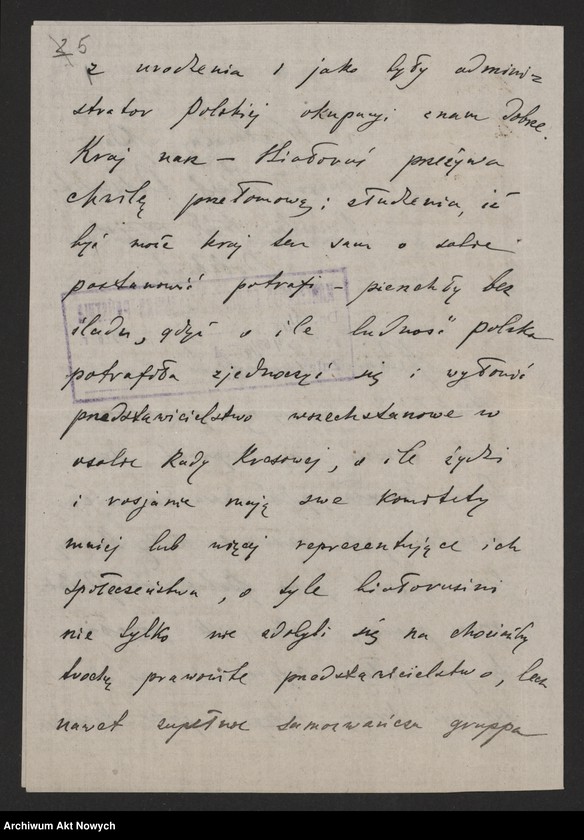 25
z urodzenia i jako były admini-
strator Polskiej okupacyi znam dobrze.
Kraj nasz – Białoruś przeżywa
chwilę przełomową; złudzenia, iż
być może kraj ten sam o sobie
postanowić potrafi – pierzchły bez
śladu, gdyż o ile ludność polska
potrafiła zjednoczyć się i wyłonić
przedstawicielstwo wszechstanowe w
osobie Rady Kresowej, o ile żydzi
i rosjanie mają swe Komitety
mniej lub więcej reprezentujące ich
społeczeństwa, o tyle białorusini
nie tylko nie zdobyli się na chociażby
trochę prawowite przedstawicielstwo, lecz
nawet zupełnie samozwańcza gruppa
Archiwum Akt Nowych